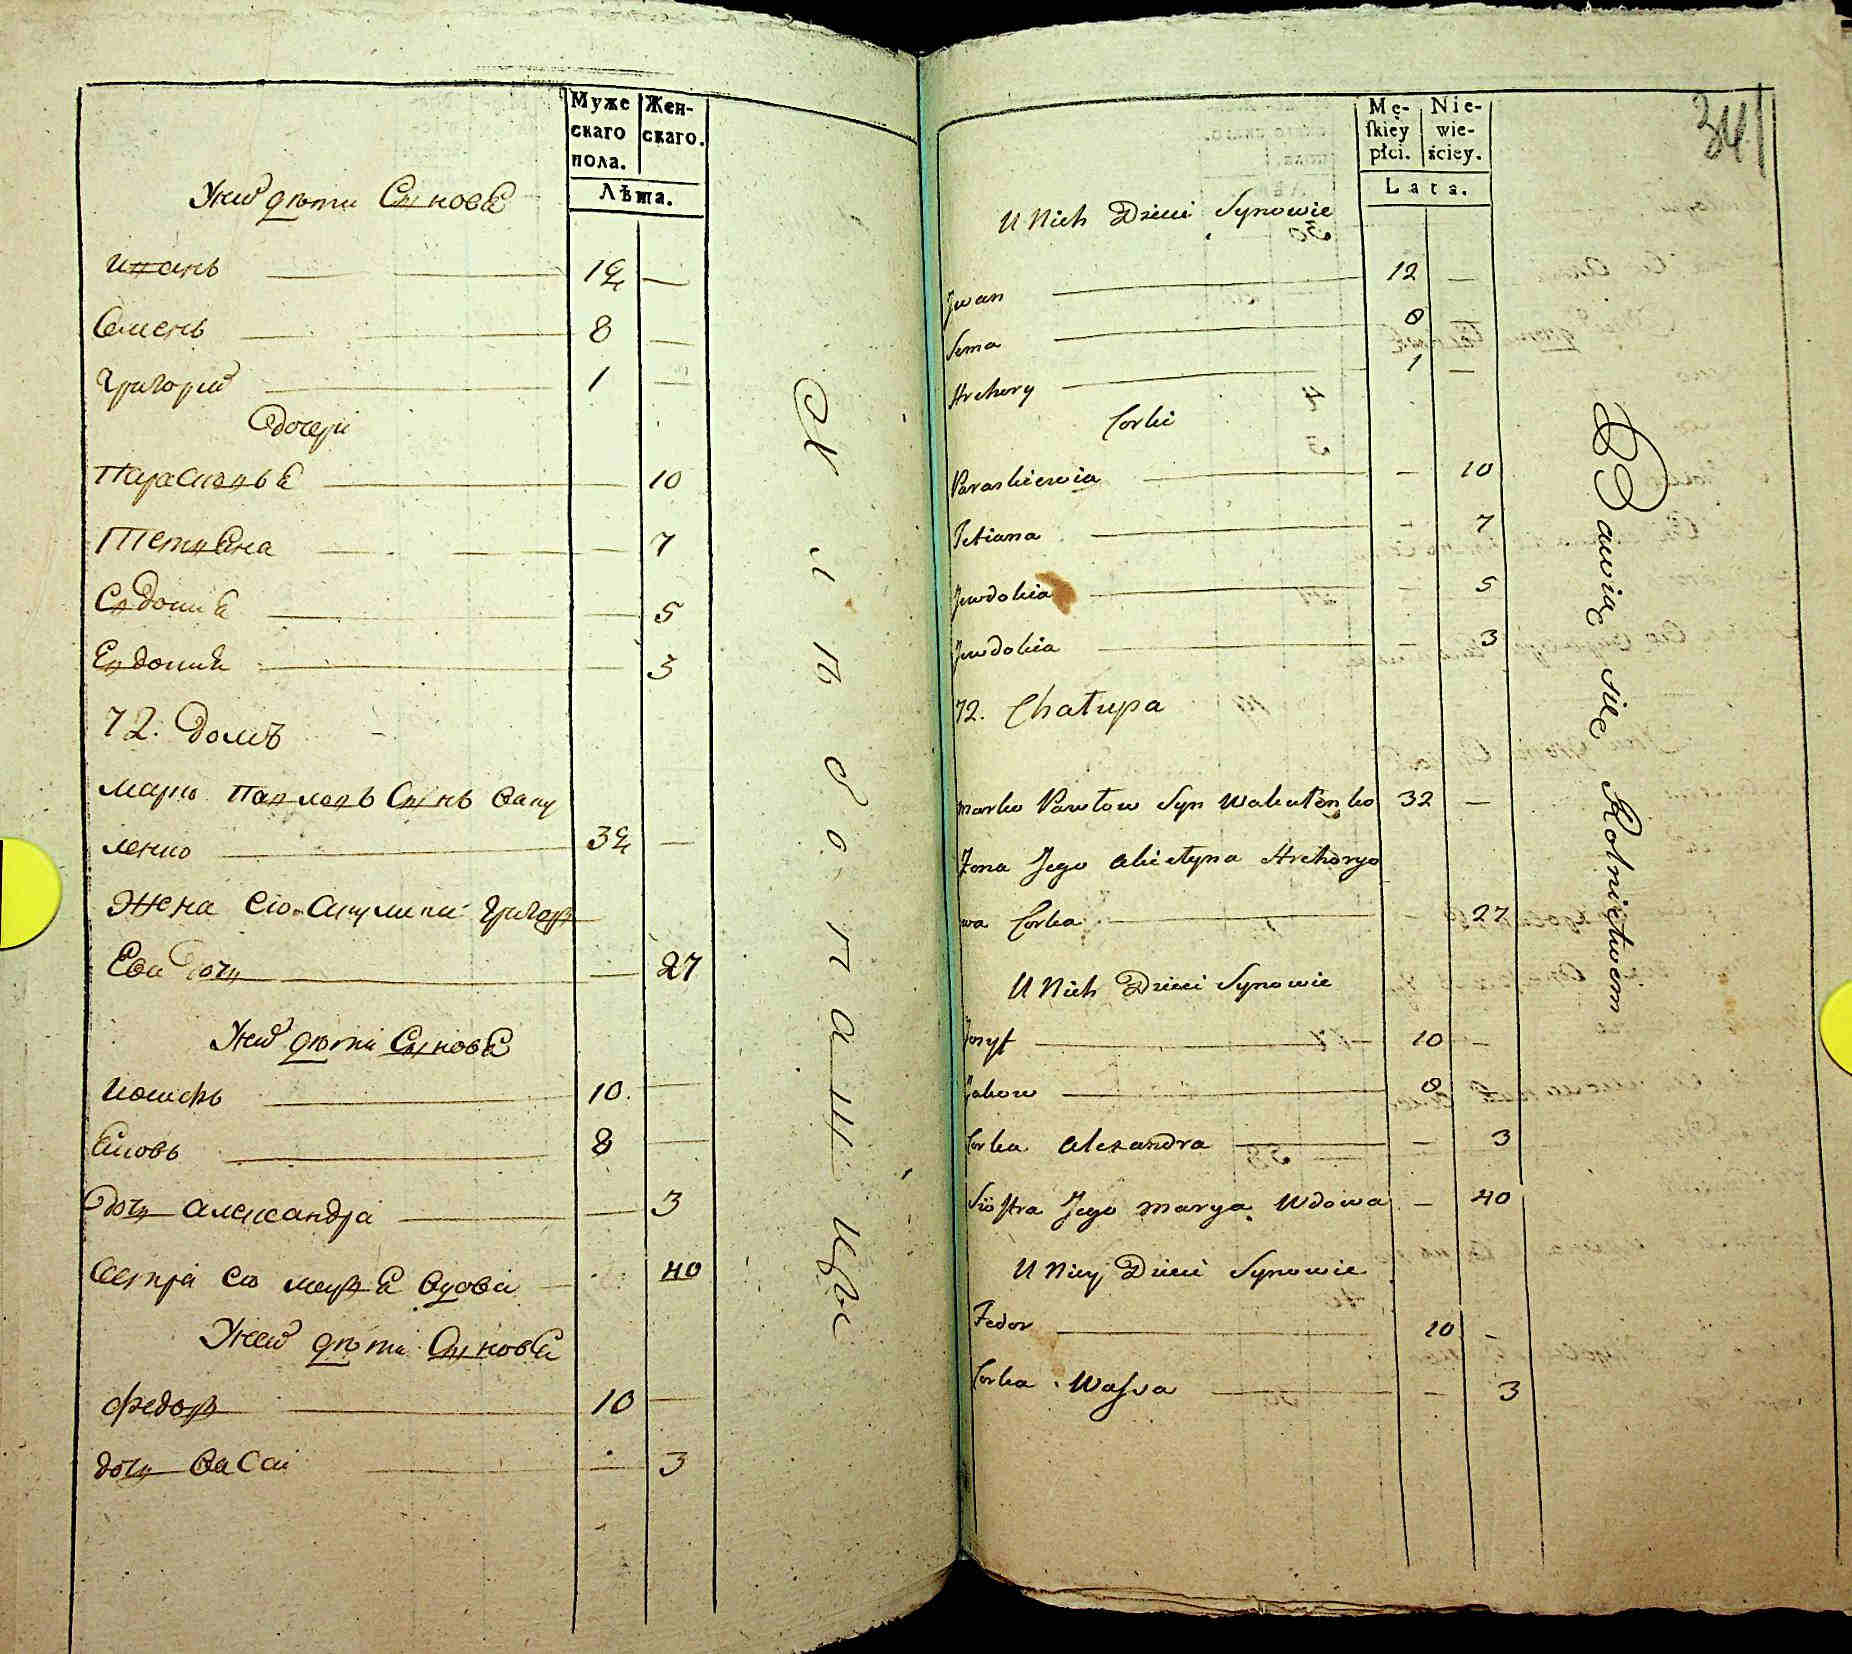 Муже Жен-
скаго скаго.
пола.
Лѣта.
У нихъ дѣти Сыновя
Иванъ 12 —
Семенъ 8 —
Григорий 1 —
дочери
Парасковья 10
Тетияна — 7
Евдокия — 5
Евдокия — 3
72. домъ
Марко Павловъ Сынъ Ваку
ленко 32 —
Жена его Акулина Григор
Ева дочь — 27
У нихъ дѣти Сыновя
Иосифъ 10. —
Яковъ 8 —
дочь Александра — 3
Сестра его Маря вдова 40
У ней дѣти Сыновя
Федор 10 —
дочь Васа — 3
Хлѣбопашцы
341
Mę- Nie-
skiey wie-
płci. ściey.
Lata.
U Nich Dzieci Synowie
Jwan 12 —
Sema 8 —
Hrehory 1 —
Corki
Paraskiewia — 10
Tetiana — 7
Jewdokia — 5
Jewdokia — 3
72. Chałupa
Marko Pawłow Syn Wakulenko 32 —
Żona Jego Akietyna Hrehoryo
wa Corka — 27
U Nich Dzieci Synowie
Josyf 10 —
Jakow 8
Corka Alexandra — 3
Siostra Jego Marya Wdowa — 40
U Niey Dzieci Synowie
Fedor 10 —
Corka Wassa — 3
Bawią się Rolnictwem